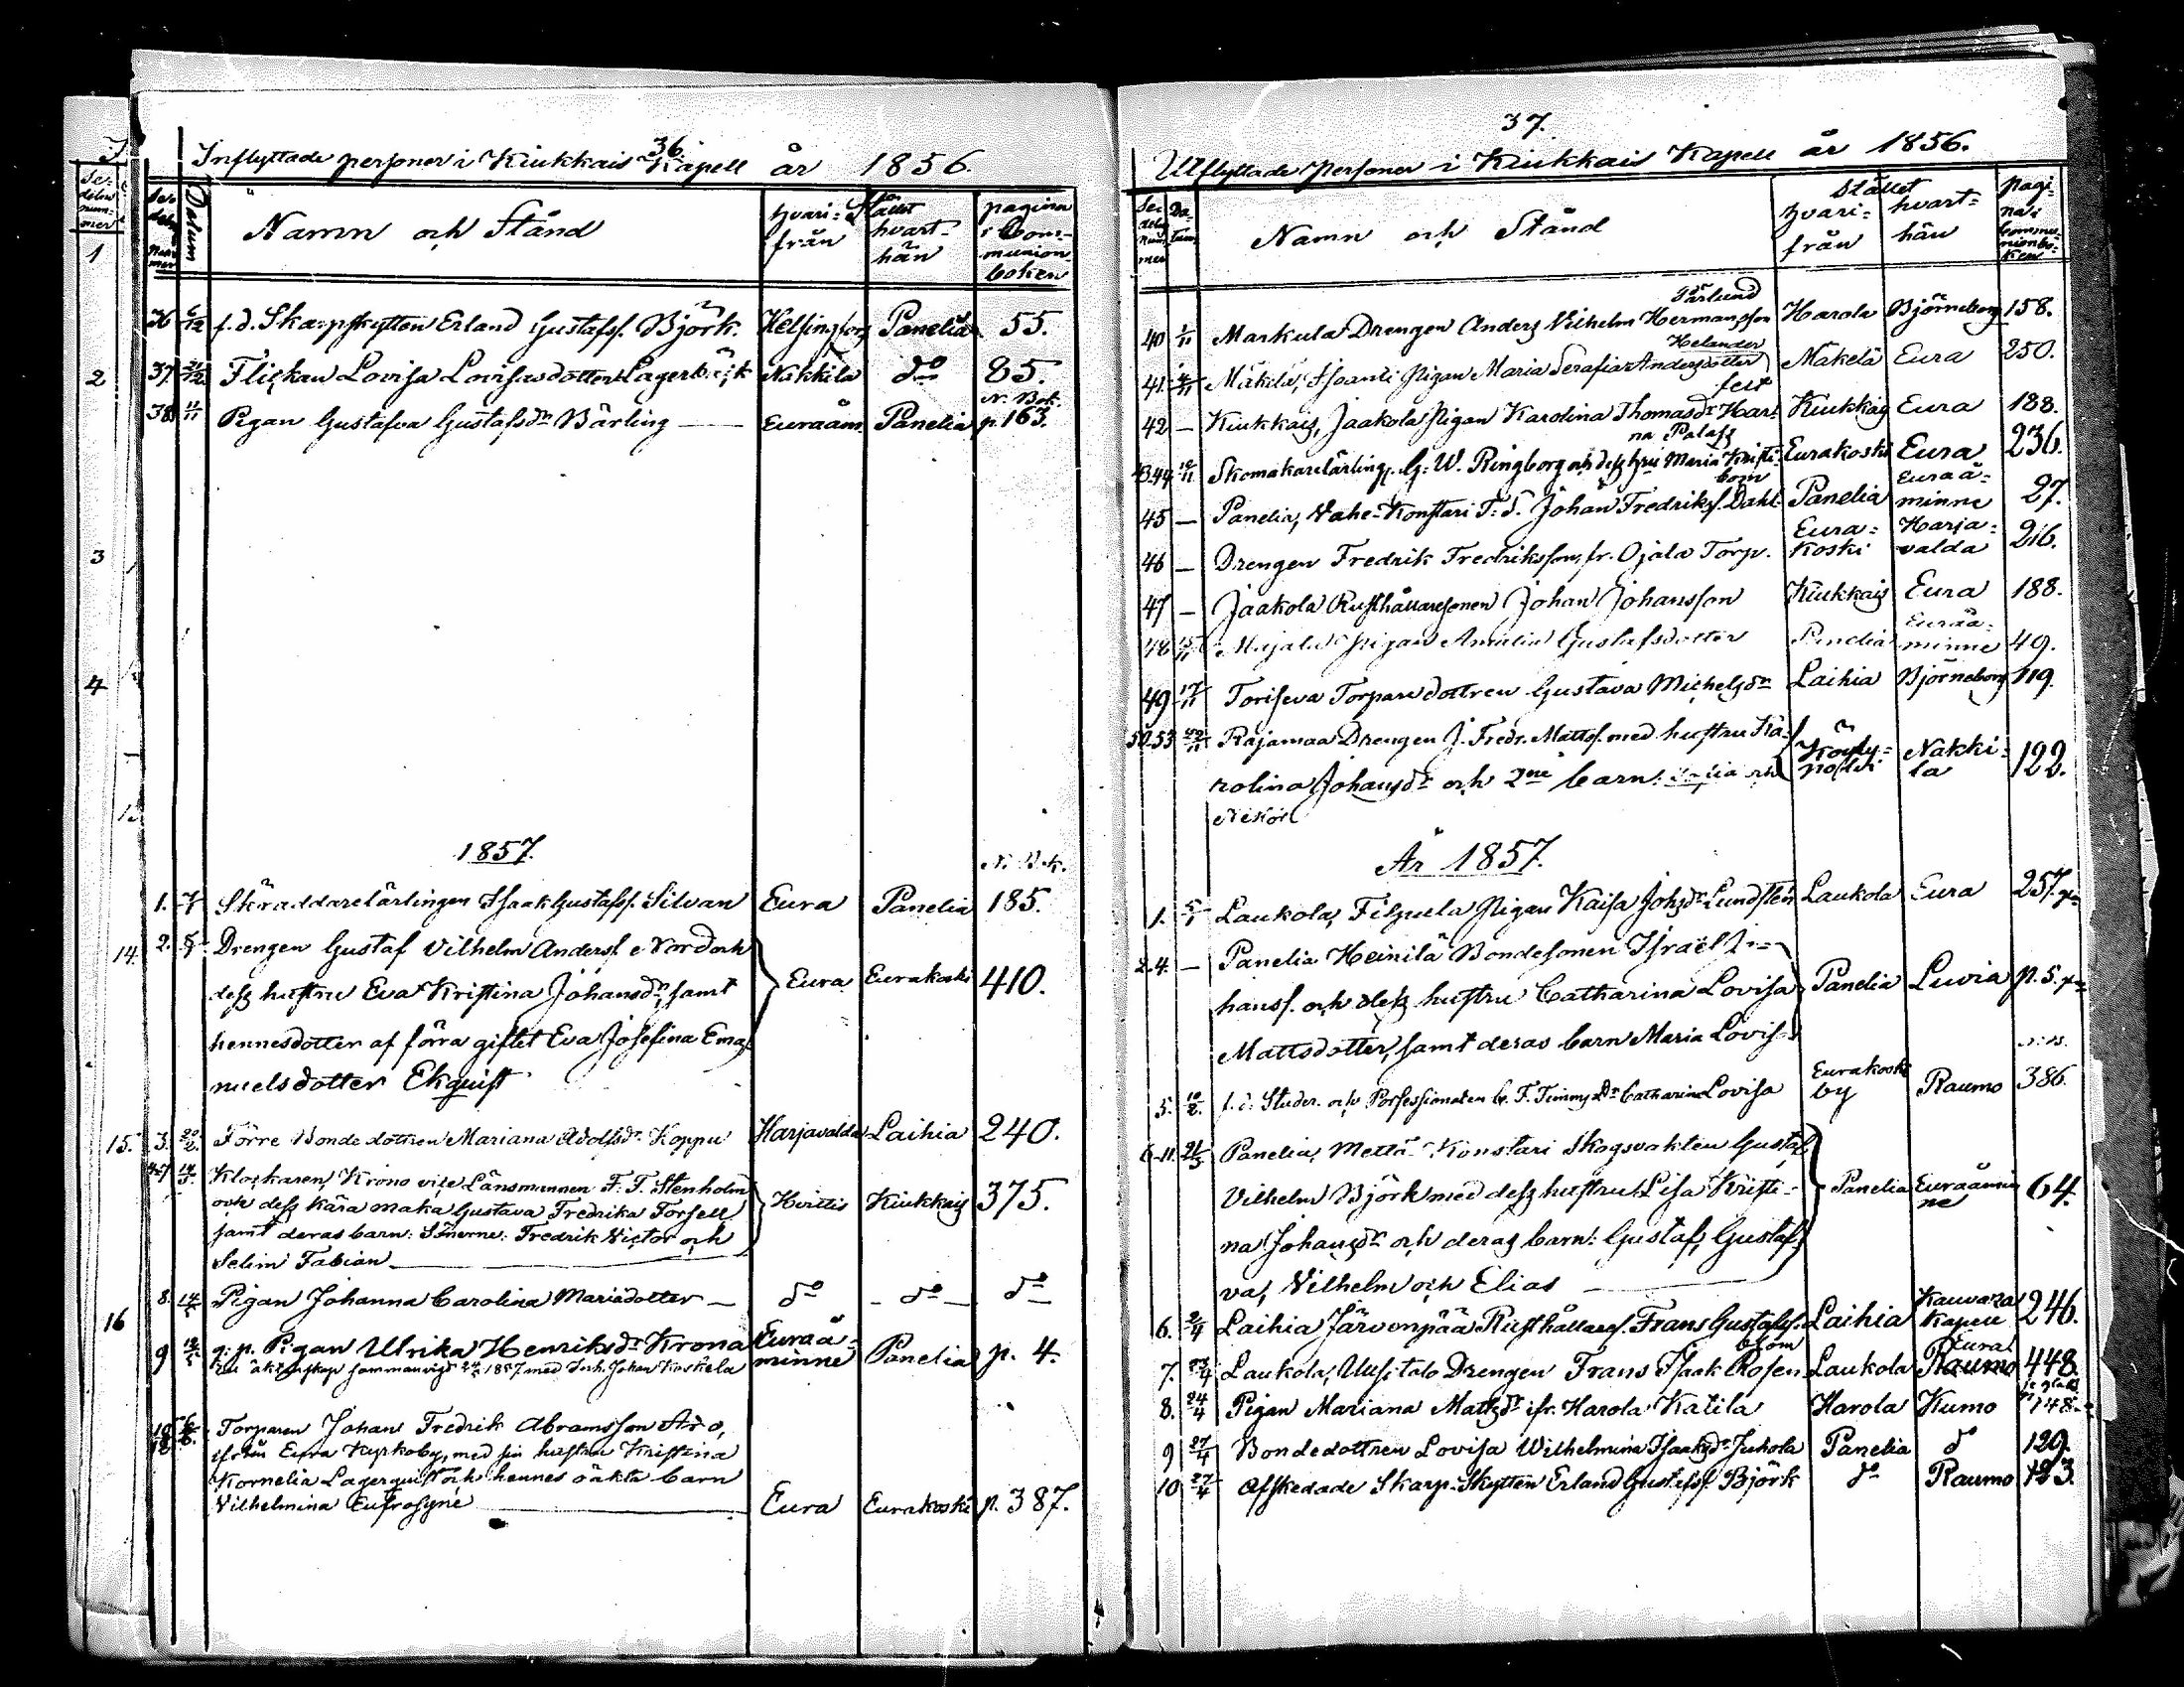 36.
Inflyttade personer i Kiukkais Kapell år 1856.
Sedelns Nummer Datum Namn och Stånd Stället hvarifrån hvarthän pagina i Communionboken
36 6/12 f.d. Skarpskytten Erland Gustafss. Björk. Helsingfors Panelia 55.
37. Flickan Lovisa Lovisasdotter Lagerbäck Nakkila do 85.
N. Bok.
38. 11/11 Pigan Gustafva Gustafsdr Bärling Euraåm. Panelia p. 163.
1857.
1. 7/1 Skräddarelärlingen Isaak Gustafss. Silvan Eura Panelia 185.
2. Drengen Gustaf Vilhelm Anderss. Nord och
dess hustru Eva Kristina Johansdr, samt Eura Eurakoski 410.
hennes dotter af förra giftet Eva Josefina Ema-
nuelsdotter Ekquist
3. 20/2 Förre Bondedottren Mariana Adolfsdr Koppu Harjavalda Laihia 240.
4-7 Klockaren, Krono vice Länsmannen F. F. Stenholm
och dess kära maka Gustava Fredrika Forsell Hvittis Kiukkais 375.
samt deras barn: Sönerne: Fredrik Victor och
Selim Fabian
8. Pigan Johanna Carolina Mariadotter do do do
9 g. p. Pigan Ulrika Henriksdr Krona Euraå-
minne Panelia p. 4.
äktenskap sammanvigd 1857 med Inh. Johan Koskela
10 12 Torparen Johan Fredrik Abramsson Aro,
ifrån Eura Kyrkoby, med sin hustru Kristina
Kornelia Lagerquist och hennes oäkta barn
Vilhelmina Eufrosyne Eura Eurakoski p. 387.
37.
Utflyttade Personer i Kiukkais Kapell år 1856.
Sedelns Nummer Datum Namn och Stånd Stället hvarifrån hvarthän pagina i Communionboken
Färlund
40 1/11 Markula Drengen Anders Vilhelm Hermansson Harola Björneborg 158.
Helander
41. Mäkelä, Isoantti Pigan Maria Serafia Andersdotter Mäkelä Eura 250.
felt
42 — Kiukkais, Jaakola Pigan Karolina Thomasdr Har- Kiukkais Eura 188.
na Palass
43.44 Skomakarelärling. G. W. Ringborg och dess hru Maria Kristi- Eurakoski Eura 236.
bom Euraå-
45 — Panelia, Vahe-Konstari T. d. Johan Fredrikss. Dahl- Panelia minne 27.
Eura- Harja-
46 — Drengen Fredrik Fredriksson, fr. Ojala Torp. koski valda 216.
47 — Jaakola Rusthållaresonen Johan Johansson Kiukkais Eura 188.
Euraå-
48 15/11 Majala Pigan Amalia Gustafsdotter Panelia minne 49.
49 17/11 Toriseva Torparedottren Gustava Michelsdr Laihia Björneborg 119.
50.53 Rajamaa Drengen J. Fredr. Mattss. med hustru Ka-
rolina Johansdr och 2ne barn: och Köyly- Nakki-
la 122.
År 1857.
1. 5/1 Laukola, Filpuela Pigan Kaisa Johsdr Lundsten Laukola Eura 257.
2.4. — Panelia Heinilä Bondesonen Israel Jo-
hanss. och dess hustru Catharina Lovisa Panelia Luvia p. 5.
Mattsdotter, samt deras barn Maria Lovisa
5. 10/2. f.d. Studer. och Possessionaten G. F. Timmy Dr Catharina Lovisa Eurakoski by Raumo 386.
6-11. 21/3 Panelia, Mettä-Konstari Skogsvakten Gustaf
Vilhelm Björk med dess hustru Lisa Kristi- Panelia Euraåmin
ne 64.
na Johansdr och deras barn: Gustaf, Gustaf-
va, Vilhelm och Elias
Kauvaza
6. 2/4 Laihia Järvenpää Rusthållares. Frans Gustafss. Laihia Kapell 246.
blom Eura
7. 23/4 Laukola, Uusitalo Drengen Frans Isaak Rosen Laukola Raumo 448
8. 24/4 Pigan Mariana Mattsdr ifr. Harola Katila Harola Kumo 148.
9 27/4 Bondedottren Lovisa Wilhelmina Isaaksdr Juhola Panelia do 129.
10 27/4 Afskedade Skarp-Skytten Erland Gustafss. Björk do Raumo 123.
1
2
3
4
14.
15.
16